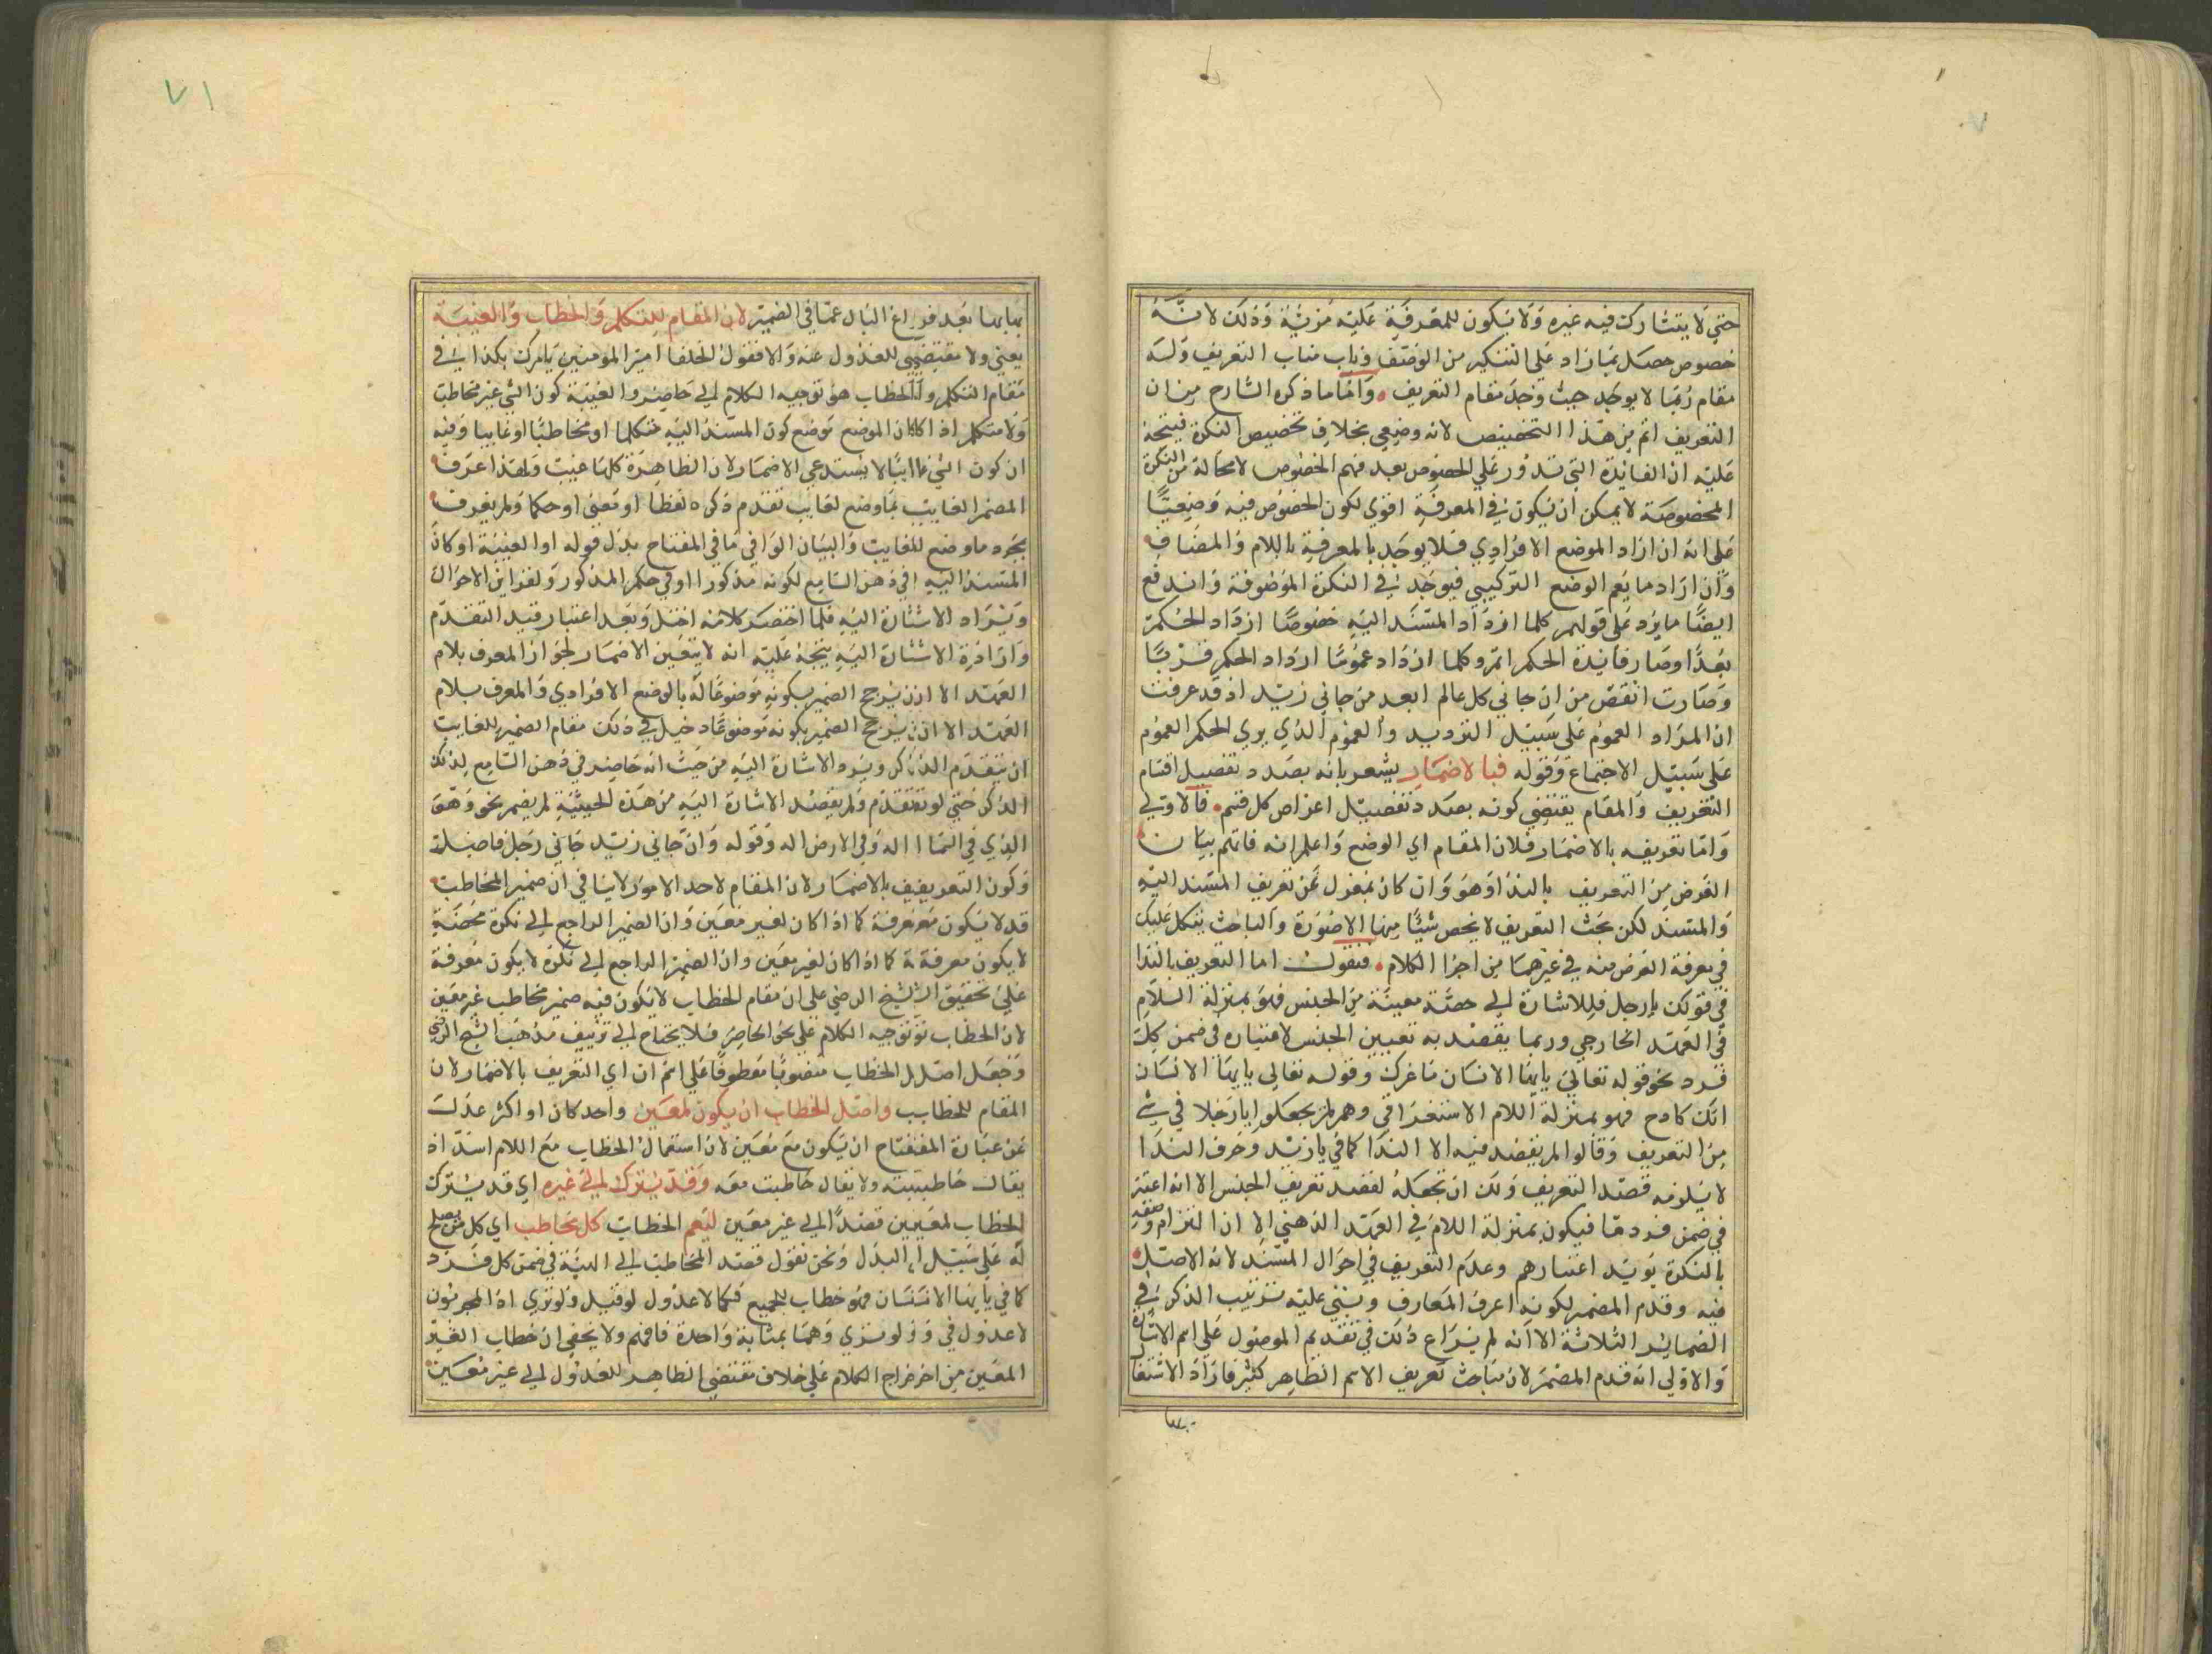 حتي لا يتشارك فيه غيره ولا يكون للمعرفة عليه مزية وذلك لانه
خصوص حصل بما زاد علي التنكير من الوصف وناب مناب التعريف وله
مقام ربما لا يوجد حيث وجد مقام التعريف واما ما ذكره الشارح من ان
التعريف اتم من هذا التخصيص لانه وضعي بخلاف تخصيص النكرة فيتجه
عليه ان الفايدة التي تدور علي الخصوص بعد فهم الخصوص لا محالة من النكرة
المخصوصة لا يمكن ان يكون في المعرفة اقوي لكون الخصوص فيه وضعيا
علي انه ان اراد الموضع الافرادي فلا يوجد بالمعرفة باللام والمضاف
وان اراد ما يعم الوضع التركيبي فيوجد في النكرة الموصوفة واندفع
ايضا ما يرد علي قولهم كلما ازداد المسند اليه خصوصا ازداد الحكم
بعدا وصار فايدة الحكم اتم وكلما ازداد عموما ازداد الحكم قربا
وصارت انقص من ان جاني كل عالم ابعد من جاني زيد اذ قد عرفت
ان المراد العموم علي سبيل الترديد والعموم الذي يري الحكم العموم
علي سبيل الاجتماع وقوله فبالاضمار يشعر بانه بصدد تفصيل اقسام
التعريف والمقام يقتضي كونه بصدد تفصيل اعراض كل قسم فالاولي
واما تعريفه بالاضمار فلان المقام اي الوضع واعلم انه فاتهم بيان
الغرض من التعريف بالندا وهو وان كان بمعزل عن تعريف المسند اليه
والمسند لكن بحث التعريف لا يخص شيا منها الا صورة والباحث يتكل عليك
في معرفة الغرض منه في غيرهما من اجزا الكلام فنقول اما التعريف بالندا
في قولك يا رجل فللاشارة الي حصة معينة من الجنس فهو بمنزلة السلام
في العهد الخارجي وربما يقصد به تعيين الجنس لاعتباره في ضمن كل
فرد نحو قوله تعالي يا ايها الانسان ما غرك وقوله تعالي يا ايها الانسان
انك كادح فهو بمنزلة اللام الاستغراقي وهم لم يجعلوا يا رجلا في شي
من التعريف وقالوا لم يقصد فيه الا الندا كما في يا زيد وحرف الندا
لا يلزمه قصد التعريف ولك ان تجعله لقصد تعريف الجنس الا انه اعتبر
في ضمن فرد ما فيكون بمنزلة اللام في العهد الذهني الا ان التزام وصفه
بالنكرة يويد اعتبارهم وعدم التعريف في احوال المسند لانه الاصل
فيه وقدم المضمر لكونه اعرف المعارف ويبني عليه ترتيب الذكر في
الضماير الثلاثة الا انه لم يراع ذلك في تقديم الموصول علي اسم الاشارة
والاولي انه قدم المضمر لان مباحث تعريف الاسم الظاهر كثير فاراد الاشتغال
بها
بمابها بعد فراغ البال عما في الضمير لان المقام للتكلم والخطاب والغيبة
يعني ولا مقتضي للعدول عنه والا فقول الخلفا امير المومنين يامرك بكذا في
مقام التكلم والخطاب هو توجيه الكلام الي حاضر والغيبة كون الشي غير مخاطب
ولا متكلم اذا كان الموضع موضع كون المسند اليه متكلما او مخاطبا او غايبا وفيه
ان كون الشي غايبا لا يستدعي الاضمار لان الظاهرة كلها غيب ولهذا عرف
المضمر الغايب بما وضع لغايب تقدم ذكره لفظا او معني او حكما ولم يعرف
بمجرد ما وضع للغايب والبيان الوافي ما في المفتاح بدل قوله او الغيبة او كان
المسند اليه في ذهن السامع لكونه مذكورا او في حكم المذكور ولقراين الاحوال
ويراد الاشارة اليه فلما اختصر كلامه اختل وبعد اعتبار قيد التقدم
وارادة الاشارة اليه يتجه عليه انه لا يتعين الاضمار لجواز المعرف بلام
العهد الا ان يرجح الضمير بكونه موضوعا له بالوضع الافرادي والمعرف بلام
العهد الا ان يرجح الضمير بكونه موضوعا دخيل في ذلك مقام الضمير للغايب
ان يتقدم الذكر ويرد الاشارة اليه من حيث انه حاضر في ذهن السامع لذلك
الذكر حتي لو تقدم ولم يقصد الاشارة اليه من هذه الحيثية لم يضمر نحو وهو
الذي في السما اله وفي الارض اله وقوله وان جاني زيد جاني رجل فاضل
وكون التعريف بالاضمار لان المقام لاحد الامور لا ينافي ان ضمير المخاطب
قد لا يكون معرفة كما اذا كان لغير معين وان الضمير الراجع الي نكرة محضة
لا يكون معرفة كما اذا كان لغير معين وان الضمير الراجع الي نكرة لا يكون معرفة
علي تحقيق الشيخ الرضي علي ان مقام الخطاب لا يكون فيه ضمير مخاطب غير معين
لان الخطاب توجيه الكلام علي نحو الحاضر فلا يحتاج الي تزييف مذهب الشيخ الرضي
وجعل اصل الخطاب منصوبا معطوفا علي اسم ان اي التعريف بالاضمار لان
المقام للخطاب واصل الخطاب ان يكون لمعين واحد كان او اكثر عدل
عن عبارة المفتاح ان يكون مع معين لان استعمال الخطاب مع اللام اسد اذ
يقال خاطبته ولا يقال خاطبت معه وقد يترك الي غيره اي قد يترك
الخطاب لمعين قصدا الي غير معين ليعم الخطاب كل مخاطب اي كل من يصلح
له علي سبيل البدل ونحن نقول قصد المخاطب الي الهية في ضمن كل فرد
كما في يا ايها الانسان فهو خطاب للجميع فكما لا عدول لو قيل ولو تري اذ المجرمون
لا عدول في ولو تري وهما بمثابة واحدة فافهم ولا يخفي ان خطاب الغير
المعين من اخراج الكلام علي خلاف مقتضي الظاهر للعدول الي غير معين
٧١